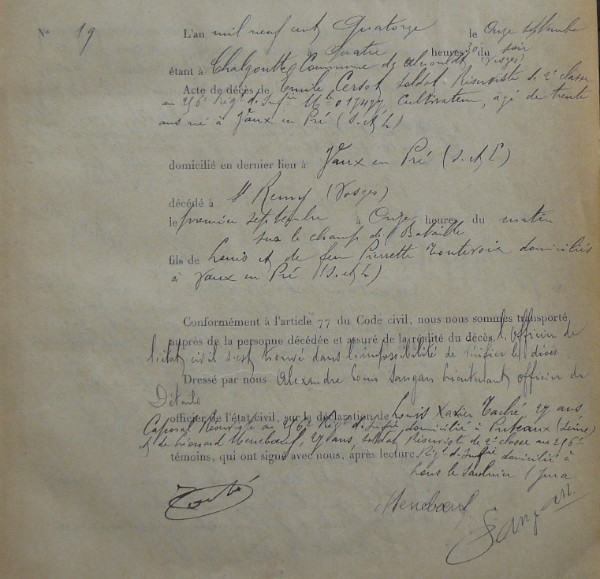 N° 19
L'an mil neuf cent Quatorze le Onze septembre
à Quatre heures 30 du soir
étant à Chalgoutte Commune de (Vosges)
Acte de décès de Emile Cersot, Soldat Réserviste de 2e classe
au 256e Régt d'Infie Mle 017477 Cultivateur, âgé de trente
ans né à Vaux en Pré (S. et L)
domicilié en dernier lieu à Vaux en Pré (S. et L)
décédé à St Remy (Vosges)
le premier septembre à Onze heures du matin
sur le champ de Bataille
fils de Louis et de feu Pierrette domiciliés
à Vaux en Pré (S. et L)
Conformément à l'article 77 du Code civil, nous nous sommes transporté
auprès de la personne décédée et assuré de la réalité du décès. L'officier de
l'état civil s'est trouvé dans l'impossibilité de vérifier le décès
Dressé par nous Alexandre Louis Sangan Lieutenant officier de
Détails
officier de l'état civil, sur la déclaration de Louis Xavier Taché 27 ans
Caporal Réserviste au 256e Régt d'Infie domicilié à Puteaux (Seine)
et de Léonard Menebœuf, 27 ans, soldat Réserviste de 2e classe au 256e
témoins, qui ont signé avec nous, après lecture Régt d'Infie domicilié à
Lons le Saulnier (Jura
Menebœuf
Sangan